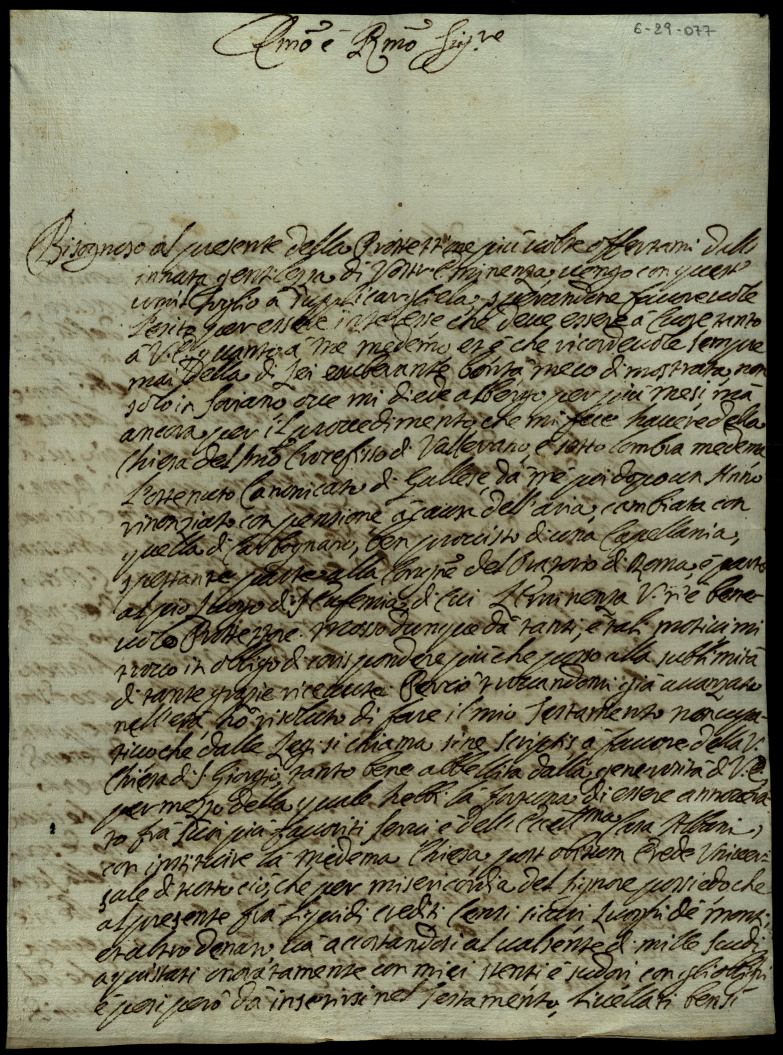 6-29-077
Emo è Rmo Sigre
Bisognoso al presente della Protettione più volte offertami dalla
innata gentilezza di Vostr'Eminenza vengo con questo
umil foglio a supplicargliela, sperandone favorevole
l'esito per essere interesse che deve essere à cuore tanto
à V.E. quanto a me medemo, et è che ricordevole sempre
mai della di Lei exuberante bontà meco dimostrata, non
solo in Soriano ove mi diede albergo per più mesi, mà
ancora per il provedimento, che mi fece havere della
Chiesa del Smo Crocefisso di Vallerano, e sotto l'ombra medema
l'ottenuto Canonicato di Gallese, da me poi dopo un Anno
rinonziato con pensione à causa dell'aria, cambiata con
quella di Carbognano, ben provisto di una Capellania,
spettante parte alla Congne del Oratorio di Roma, è parte
al pio luogo di S. Eufemia, di cui l'Eminenza V. n'è bene-
volo Protettore. Mosso dunque dà tanti, è tali motivi mi
trovo in obligo di corispondere più che posso alla sublimità
di tante grazie ricevute. Perciò trovandomi già avanzato
nell'età, hò risoluto di fare il mio Testamento noncupa-
tivo che dalle Leggi si chiama sine scriptis à favore della V.
Chiesa di S. Giorgio, tanto bene abbellita dalla generosità di V.E.
per mezzo della quale hebbi la fortuna di essere annovera-
to frà li più favoriti servi è dell'Eccellma Casa Albani,
con instituire la medema Chiesa post obitum Erede Univer-
sale di tutto ciò, che per misericordia del Signore possiedo che
al presente frà liquidi crediti Censi sicuri Luoghi de monti,
et altro denaro, và accostandosi al valsente di mille scudi
aquistati onoratamente con miei stenti è sudori con gli oblighi
è pesi però dà inserirsi nel Testamento, livellati bensì